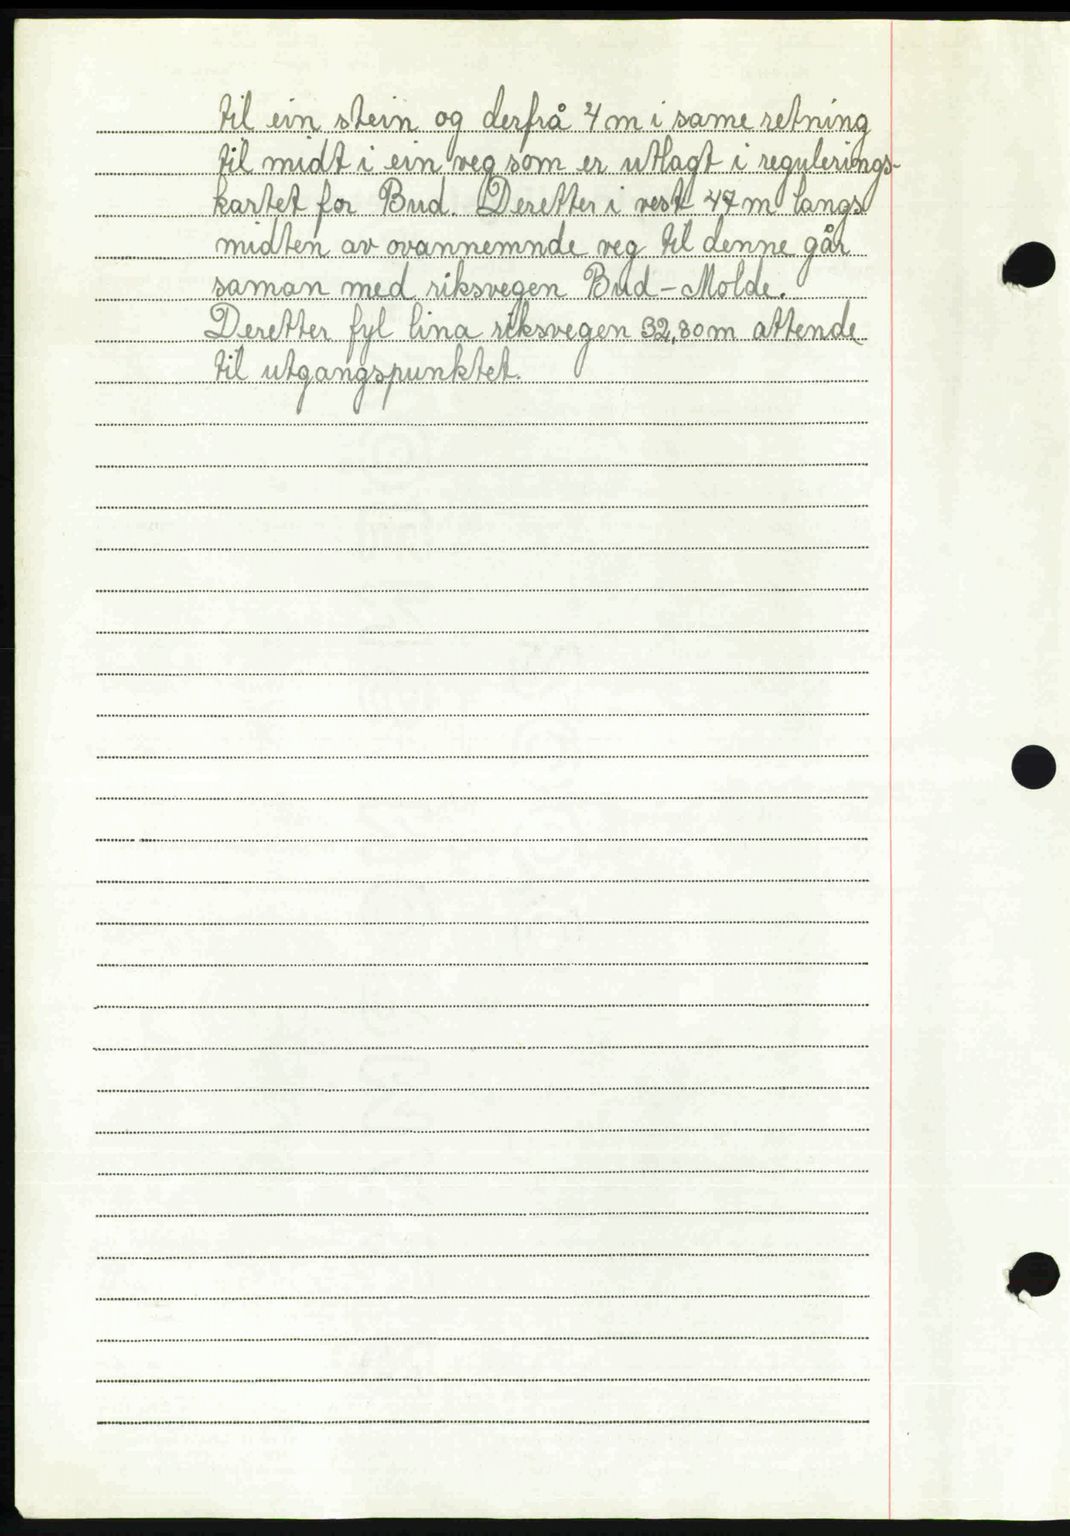 til ein stein og derfrå 4 m i same retning
til midt i ein veg som er utlagt i regulerings-
kartet for Bud. Deretter i vest 47 m langs
midten av ovannemnde veg til denne går
saman med riksvegen Bud-Molde.
Deretter fyl lina riksvegen 32,80 m attende
til utgangspunktet.